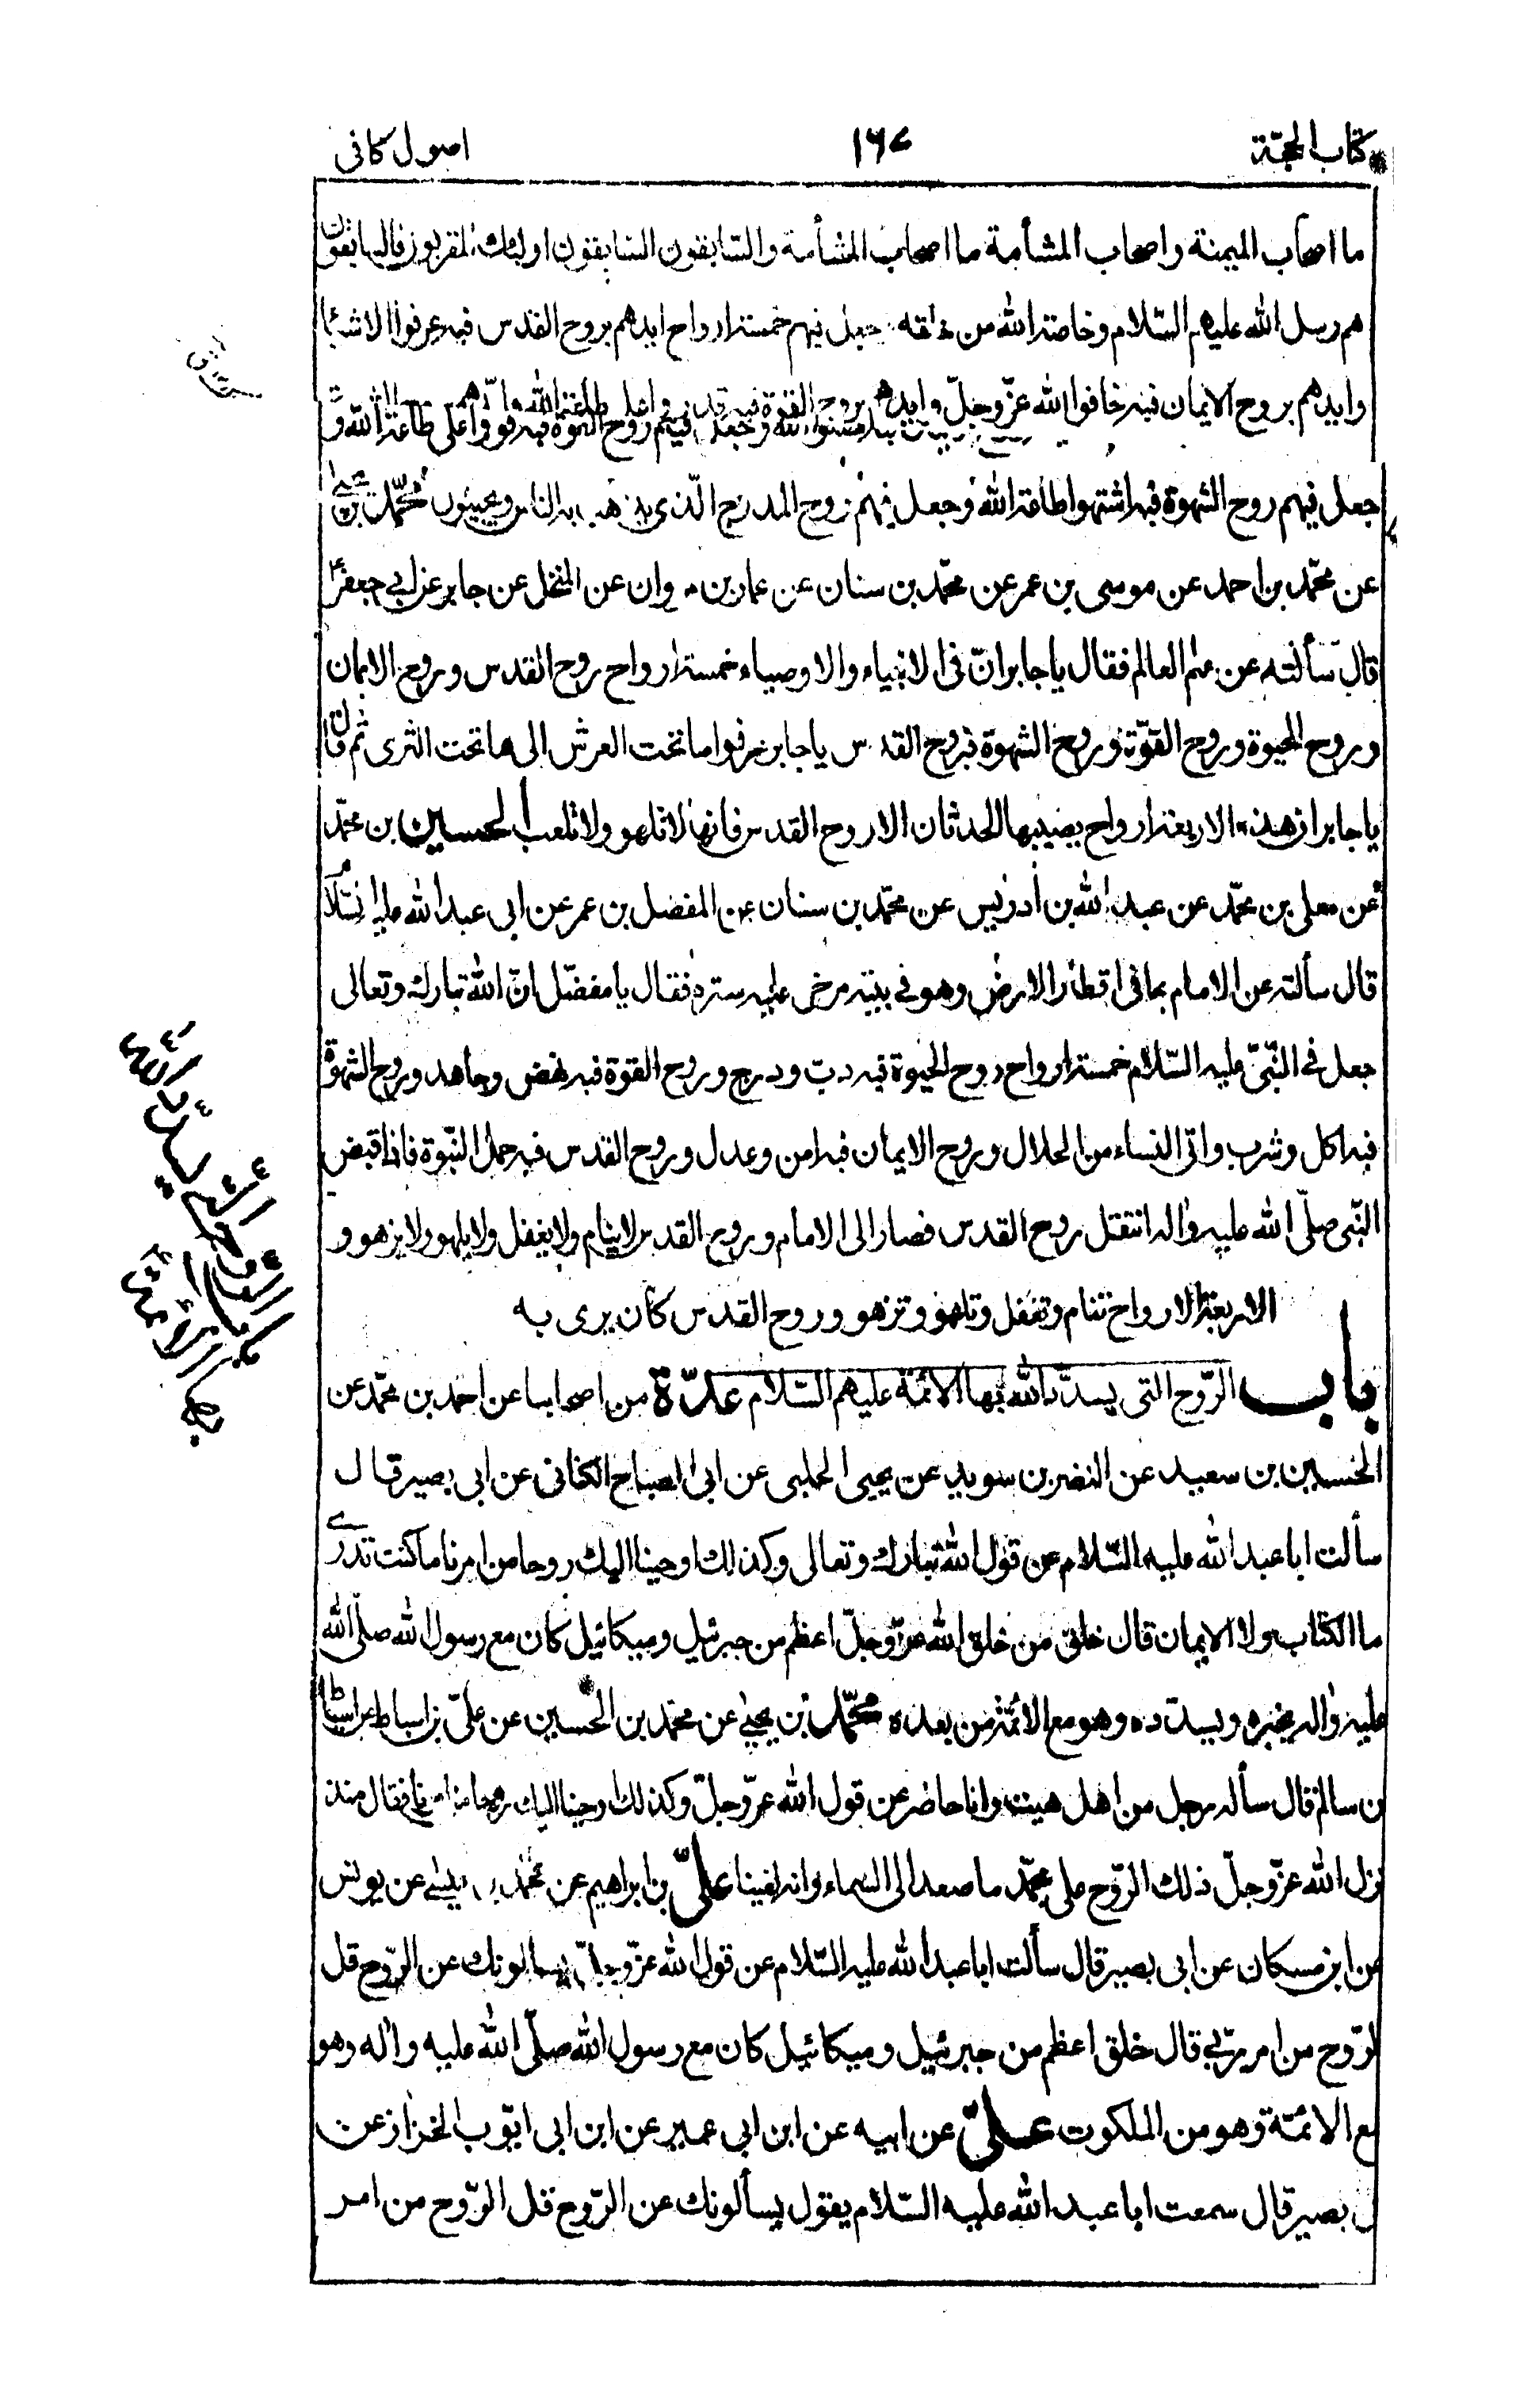 كتاب الحجّة ١٦٧ اصول كافى
ما اصحاب الميمنة واصحاب المشأمة ما اصحاب المشأمة والسّابقون السّابقون اولئك المقربون فالسابقون
هم رسل الله عليهم السّلام وخاصة الله من خلقه جعل فيهم خمسة ارواح ايدهم بروح القدس فبه عرفوا الاشياء
وايدهم بروح الايمان فبه خافوا الله عزّ وجلّ وايدهم بروح القوة فبه قدروا على طاعة الله و
جعل فيهم روح الشهوة فبه اشتهوا طاعة الله وجعل فيهم روح المدرج الّذى يذهب به الناس ويجيئون محمّد بن يحيى
عن محمّد بن احمد عن موسى بن عمر عن محمّد بن سنان عن عمار بن مروان عن المنخل عن جابر عن ابي جعفر ع
قال سألته عن علم العالم فقال يا جابر انّ فى الانبياء والاوصياء خمسة ارواح روح القدس وروح الايمان
وروح الحيوة وروح القوّة وروح الشهوة فبروح القدس يا جابر عرفوا ما تحت العرش الى ما تحت الثرى ثم قال
يا جابر ان هذه الاربعة ارواح يصيبها الحدثان الا روح القدس فانها لا تلهو ولا تلعب الحسين بن محمّد
عن معلى بن محمّد عن عبد الله بن أدريس عن محمّد بن سنان عن المفضل بن عمر عن ابى عبد الله عليه السّلام
قال سألته عن الامام بما فى اقطار الارض وهو فى بيته مرخى عليه ستره فقال يا مفضّل انّ الله تبارك وتعالى
جعل فى النّبىّ عليه السّلام خمسة ارواح روح الحيوة فبه دبّ ودرج وروح القوة فبه نهض وجاهد وروح الشهوة
فبه اكل وشرب واتى النساء من الحلال وروح الايمان فبه امن وعدل وروح القدس فبه حمل النّبوة فاذا قبض
النّبى صلّى الله عليه واله انتقل روح القدس فصار الى الامام وروح القدس لا ينام ولا يغفل ولا يلهو ولا يزهو و
الاربعة الارواح تنام وتغفل وتلهو وتزهو وروح القدس كان يرى به
باب الرّوح التى يسدّد الله بها الائمّة عليهم السّلام عدّة من اصحابنا عن احمد بن محمّد عن
الحسين بن سعيد عن النضر بن سويد عن يحيى الحلبى عن ابى الصباح الكنانى عن ابى بصير قال
سألت ابا عبد الله عليه السّلام عن قول الله تبارك وتعالى وكذلك اوحينا اليك روحا من امرنا ما كنت تدرى
ما الكتاب ولا الايمان قال خلق من خلق الله عزّ وجلّ اعظم من جبرئيل وميكائيل كان مع رسول الله صلّى الله
عليه واله يخبره ويسدّده وهو مع الائمّة من بعده محمّد بن يحيى عن محمّد بن الحسين عن علىّ بن اسباط عن اسباط
بن سالم قال سأله رجل من اهل هيت وانا حاضر عن قول الله عزّ وجلّ وكذلك اوحينا اليك روحا من امرنا فقال منذ
نزل الله عزّ وجلّ ذلك الرّوح على محمّد ما صعد الى السماء وانه لفينا علىّ بن ابراهيم عن محمّد بن عيسى عن يونس
عن ابن مسكان عن ابى بصير قال سألت ابا عبد الله عليه السّلام عن قول الله عزّ وجلّ يسألونك عن الرّوح قل
لرّوح من امر ربّى قال خلق اعظم من جبرئيل وميكائيل كان مع رسول الله صلّى الله عليه واله وهو
مع الائمّة وهو من الملكوت علىّ عن ابيه عن ابن ابى عمير عن ابن ابى ايّوب الخزاز عن
بصير قال سمعت ابا عبد الله عليه السّلام يقول يسألونك عن الرّوح قل الرّوح من امر